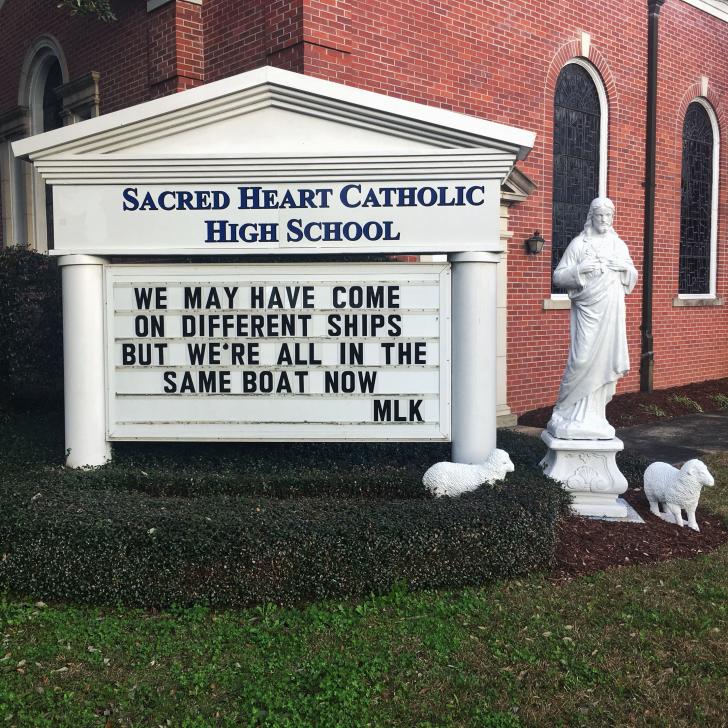 SACRED HEART CATHOLIC
HIGH SCHOOL
WE MAY HAVE COME
ON DIFFERENT SHIPS
BUT WE'RE ALL IN THE
SAME BOAT NOW
MLK